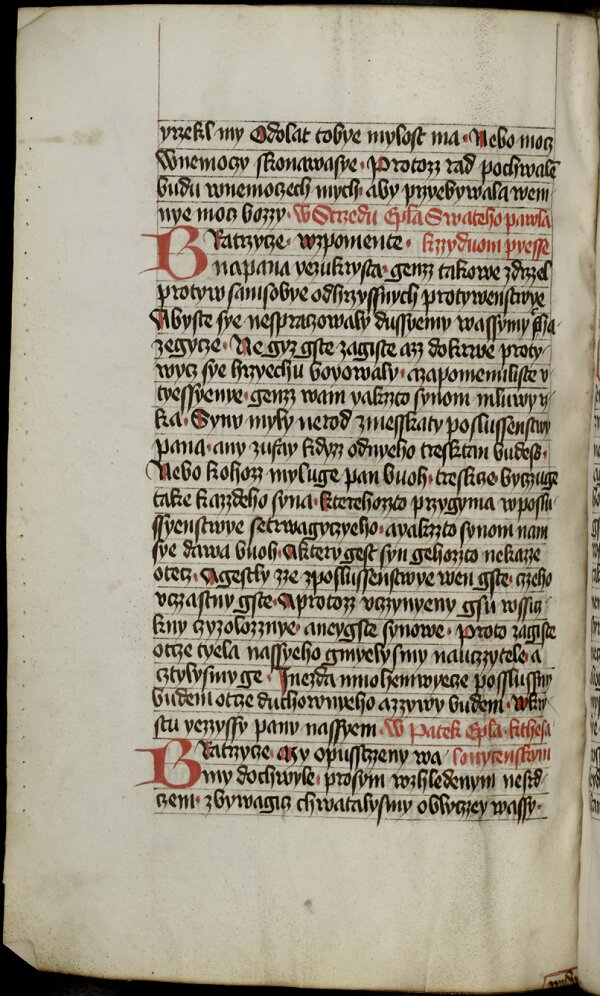 yrzekl my Odolat tobye mylost ma· Nebo mocz
wnemoczy skonawasye· Protozz rad pochwale
budu wnemoczech mych· aby przyebywala wem
nye mocz bozzy· W Strzedu Epla Swateho pawla
Bratrzycze· wzpomente· kzzyduom pyesse
napana yezukrysta· genzz takowe zdrzel
protyw samsobye odhrzyssnych protywenstwye
Abyste sye nespraczowaly dussyemy wassymy scha
zegycze· Ne gyz gste zagiste azz dokrwe proty
wycz sye hrzyechu boyowaly· azapomenuliste v
tyessyenye· genzz wam yakzzto synom mluwy rz
ka· Synu myly nerod zmesskaty poslussenstwy
pana· any zufay kdyzz odnyeho tresktan budess·
Nebo kohozz myluge pan buoh· treskcze· byczuge
take kazzdeho syna· kterehozzto przygyma wposlu
ssyenstwye setrwagyczyeho· ayakzzto synom nam
sye dawa buoh· Aktery gest syn gehozzto nekazze
otecz· Agestly zze zposlussenstwye wen gste· czeho
vczastny gste· Aprotozz vczynyeny gsu wssicz
kny czyzolozznye· aneygste synowe· Proto zagiste
otcze tyela nassyeho gmyelysmy nauczzytele· a
cztylysmy ge· Inezda mnohemwyecze poslussny
budem otcze duchownyeho azzywy budem· Wkry
stu yezzyssy panu nassyem· W Patek Epla· kthesa
Bratrzycze· Mzy opusstzeny wa lonycenskym
my dochwyle· prosym wzhledenym nesrd
czem· zbywagicz chwatalysmy oblyczey wassy·